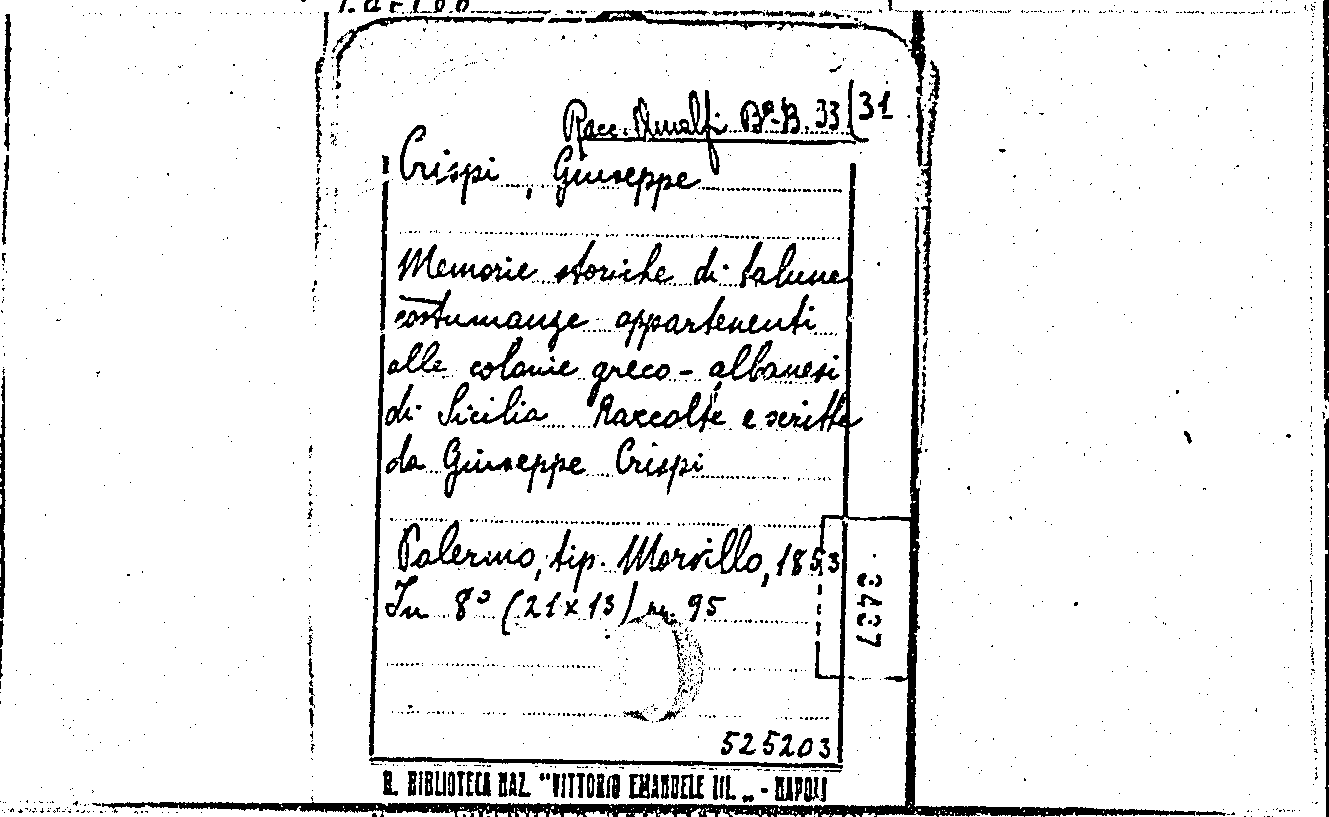 Racc. Amalfi Bª-B. 33(31
Crispi, Giuseppe
Memorie storiche di talune
costumanze appartenenti
alle colonie greco-albanesi
di Sicilia Raccolte e scritte
da Giuseppe Crispi
Palermo, tip. Morvillo, 1853
In 8° (21x13) pp. 95
3437
525203
R. BIBLIOTECA NAZ. "VITTORIO EMANUELE III. „ - NAPOLI